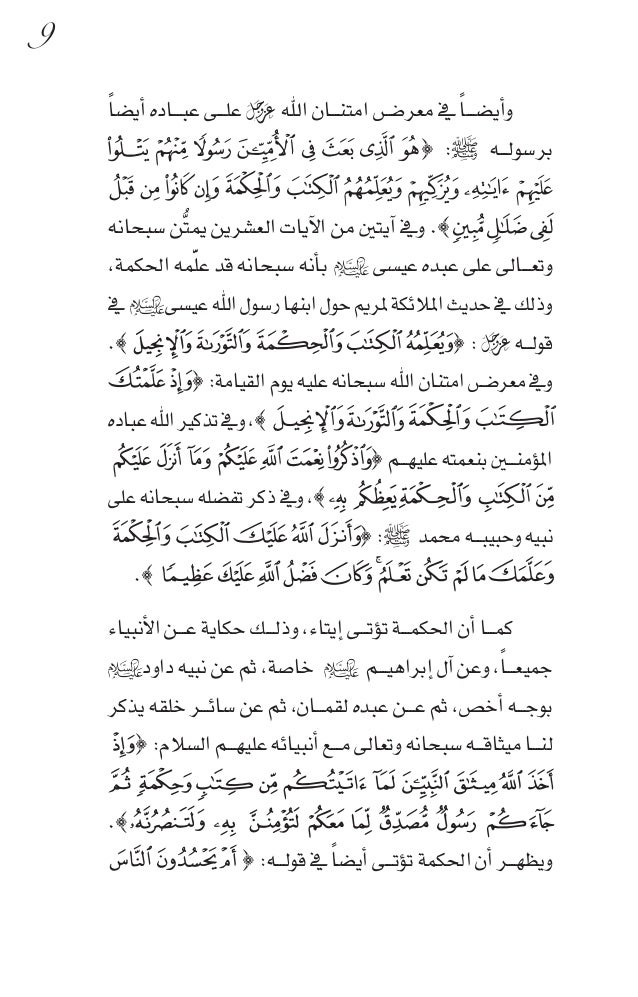 9
وأيضاً في معرض امتنان الله عز وجل على عباده أيضاً
برسوله ﷺ: ﴿هُوَ ٱلَّذِى بَعَثَ فِى ٱلْأُمِّيِّـۧنَ رَسُولًا مِّنْهُمْ يَتْلُوا۟
عَلَيْهِمْ ءَايَـٰتِهِۦ وَيُزَكِّيهِمْ وَيُعَلِّمُهُمُ ٱلْكِتَـٰبَ وَٱلْحِكْمَةَ وَإِن كَانُوا۟ مِن قَبْلُ
لَفِى ضَلَـٰلٍ مُّبِينٍ﴾. وفي آيتين من الآيات العشرين يمتنُّ سبحانه
وتعالى على عبده عيسى عليه السلام بأنه سبحانه قد علّمه الحكمة،
وذلك في حديث الملائكة لمريم حول ابنها رسول الله عيسى عليه السلام في
قوله عز وجل: ﴿وَيُعَلِّمُهُ ٱلْكِتَـٰبَ وَٱلْحِكْمَةَ وَٱلتَّوْرَىٰةَ وَٱلْإِنجِيلَ﴾.
وفي معرض امتنان الله سبحانه عليه يوم القيامة: ﴿وَإِذْ عَلَّمْتُكَ
ٱلْكِتَـٰبَ وَٱلْحِكْمَةَ وَٱلتَّوْرَىٰةَ وَٱلْإِنجِيلَ﴾، وفي تذكير الله عباده
المؤمنين بنعمته عليهم ﴿وَٱذْكُرُوا۟ نِعْمَتَ ٱللَّهِ عَلَيْكُمْ وَمَآ أَنزَلَ عَلَيْكُم
مِّنَ ٱلْكِتَـٰبِ وَٱلْحِكْمَةِ يَعِظُكُم بِهِۦ﴾، وفي ذكر تفضله سبحانه على
نبيه وحبيبه محمد ﷺ: ﴿وَأَنزَلَ ٱللَّهُ عَلَيْكَ ٱلْكِتَـٰبَ وَٱلْحِكْمَةَ
وَعَلَّمَكَ مَا لَمْ تَكُن تَعْلَمُ ۚ وَكَانَ فَضْلُ ٱللَّهِ عَلَيْكَ عَظِيمًا﴾.
كما أن الحكمة تؤتى إيتاء، وذلك حكاية عن الأنبياء
جميعاً، وعن آل إبراهيم عليه السلام خاصة، ثم عن نبيه داود عليه السلام
بوجه أخص، ثم عن عبده لقمان، ثم عن سائر خلقه يذكر
لنا ميثاقه سبحانه وتعالى مع أنبيائه عليهم السلام: ﴿وَإِذْ
أَخَذَ ٱللَّهُ مِيثَـٰقَ ٱلنَّبِيِّـۧنَ لَمَآ ءَاتَيْتُكُم مِّن كِتَـٰبٍ وَحِكْمَةٍ ثُمَّ
جَآءَكُمْ رَسُولٌ مُّصَدِّقٌ لِّمَا مَعَكُمْ لَتُؤْمِنُنَّ بِهِۦ وَلَتَنصُرُنَّهُۥ﴾.
ويظهر أن الحكمة تؤتى أيضاً في قوله: ﴿أَمْ يَحْسُدُونَ ٱلنَّاسَ